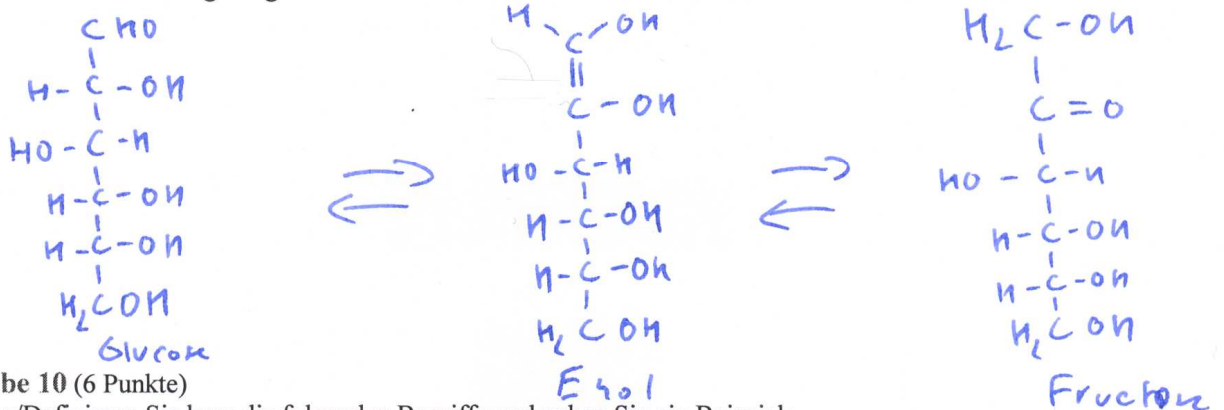 CHO
H-C-OH
HO-C-H
H-C-OH
H-C-OH
H₂COH
Glucose
H C-OH
C-OH
HO-C-H
H-C-OH
H-C-OH
H₂COH
Enol
H₂C-OH
C=O
HO-C-H
H-C-OH
H-C-OH
H₂COH
Fructose
be 10 (6 Punkte)